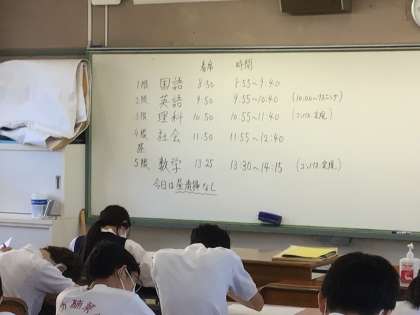 着席 時間
1限 国語 8:50 8:55~9:40
2限 英語 9:50 9:55~10:40 (10:00~リスニング)
3限 理科 10:50 10:55~11:40 (コンパス・定規)
4限 社会 11:50 11:55~12:40
昼
5限 数学 13:25 13:30~14:15 (コンパス・定規)
今日は昼清掃なし